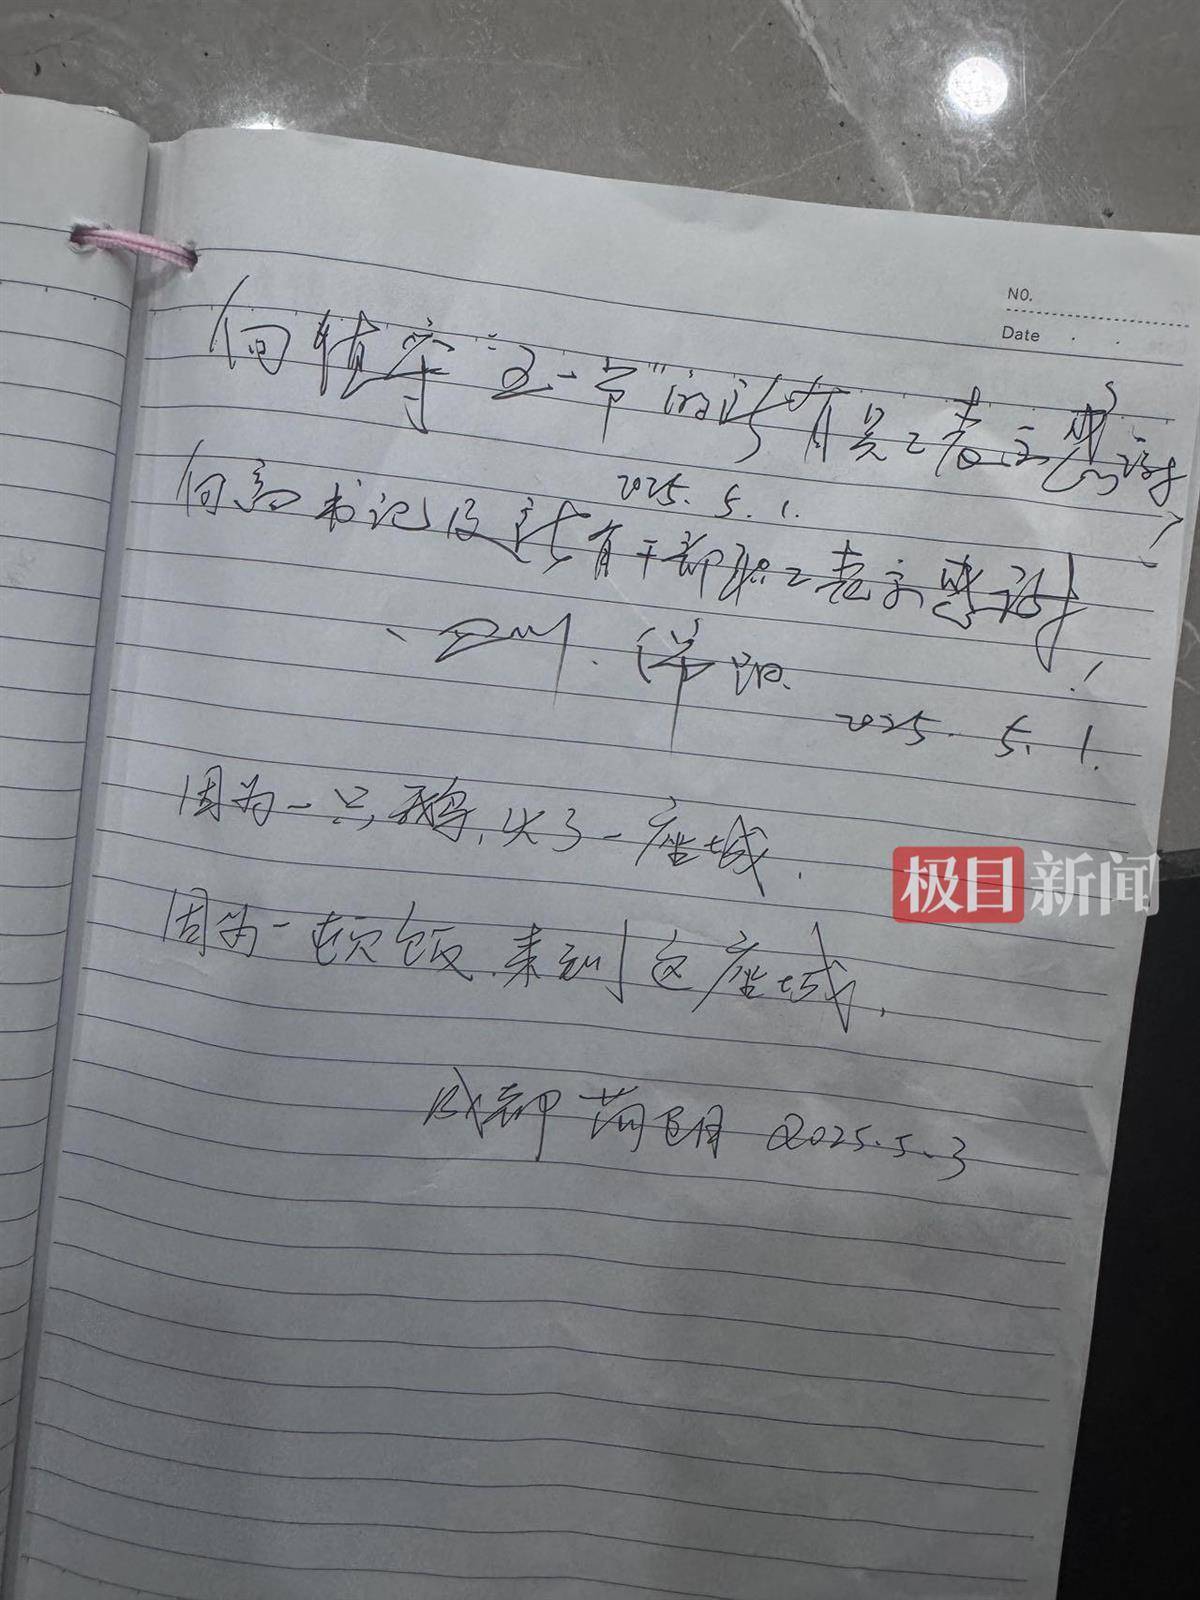 NO.
Date
向值守"五一节"的所有员工表示感谢!
2025.5.1.
向 书记及所有干部职工表示感谢!
四川.德阳.
2025.5.1.
因为一只鹅,火了一座城.
因为一顿饭,来到这座城.
成都 2025.5.3
极目新闻